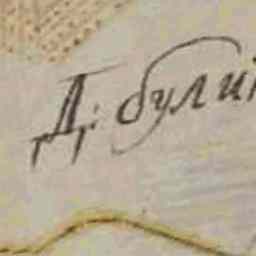 Д: були